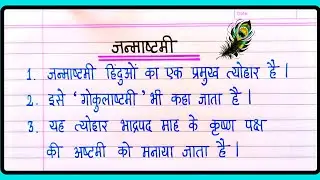 जन्माष्टमी
1. जन्माष्टमी हिंदुओं का एक प्रमुख त्योहार है |
2. इसे 'गोकुलाष्टमी' भी कहा जाता है |
3. यह त्योहार भाद्रपद माह के कृष्ण पक्ष
की अष्टमी को मनाया जाता है |